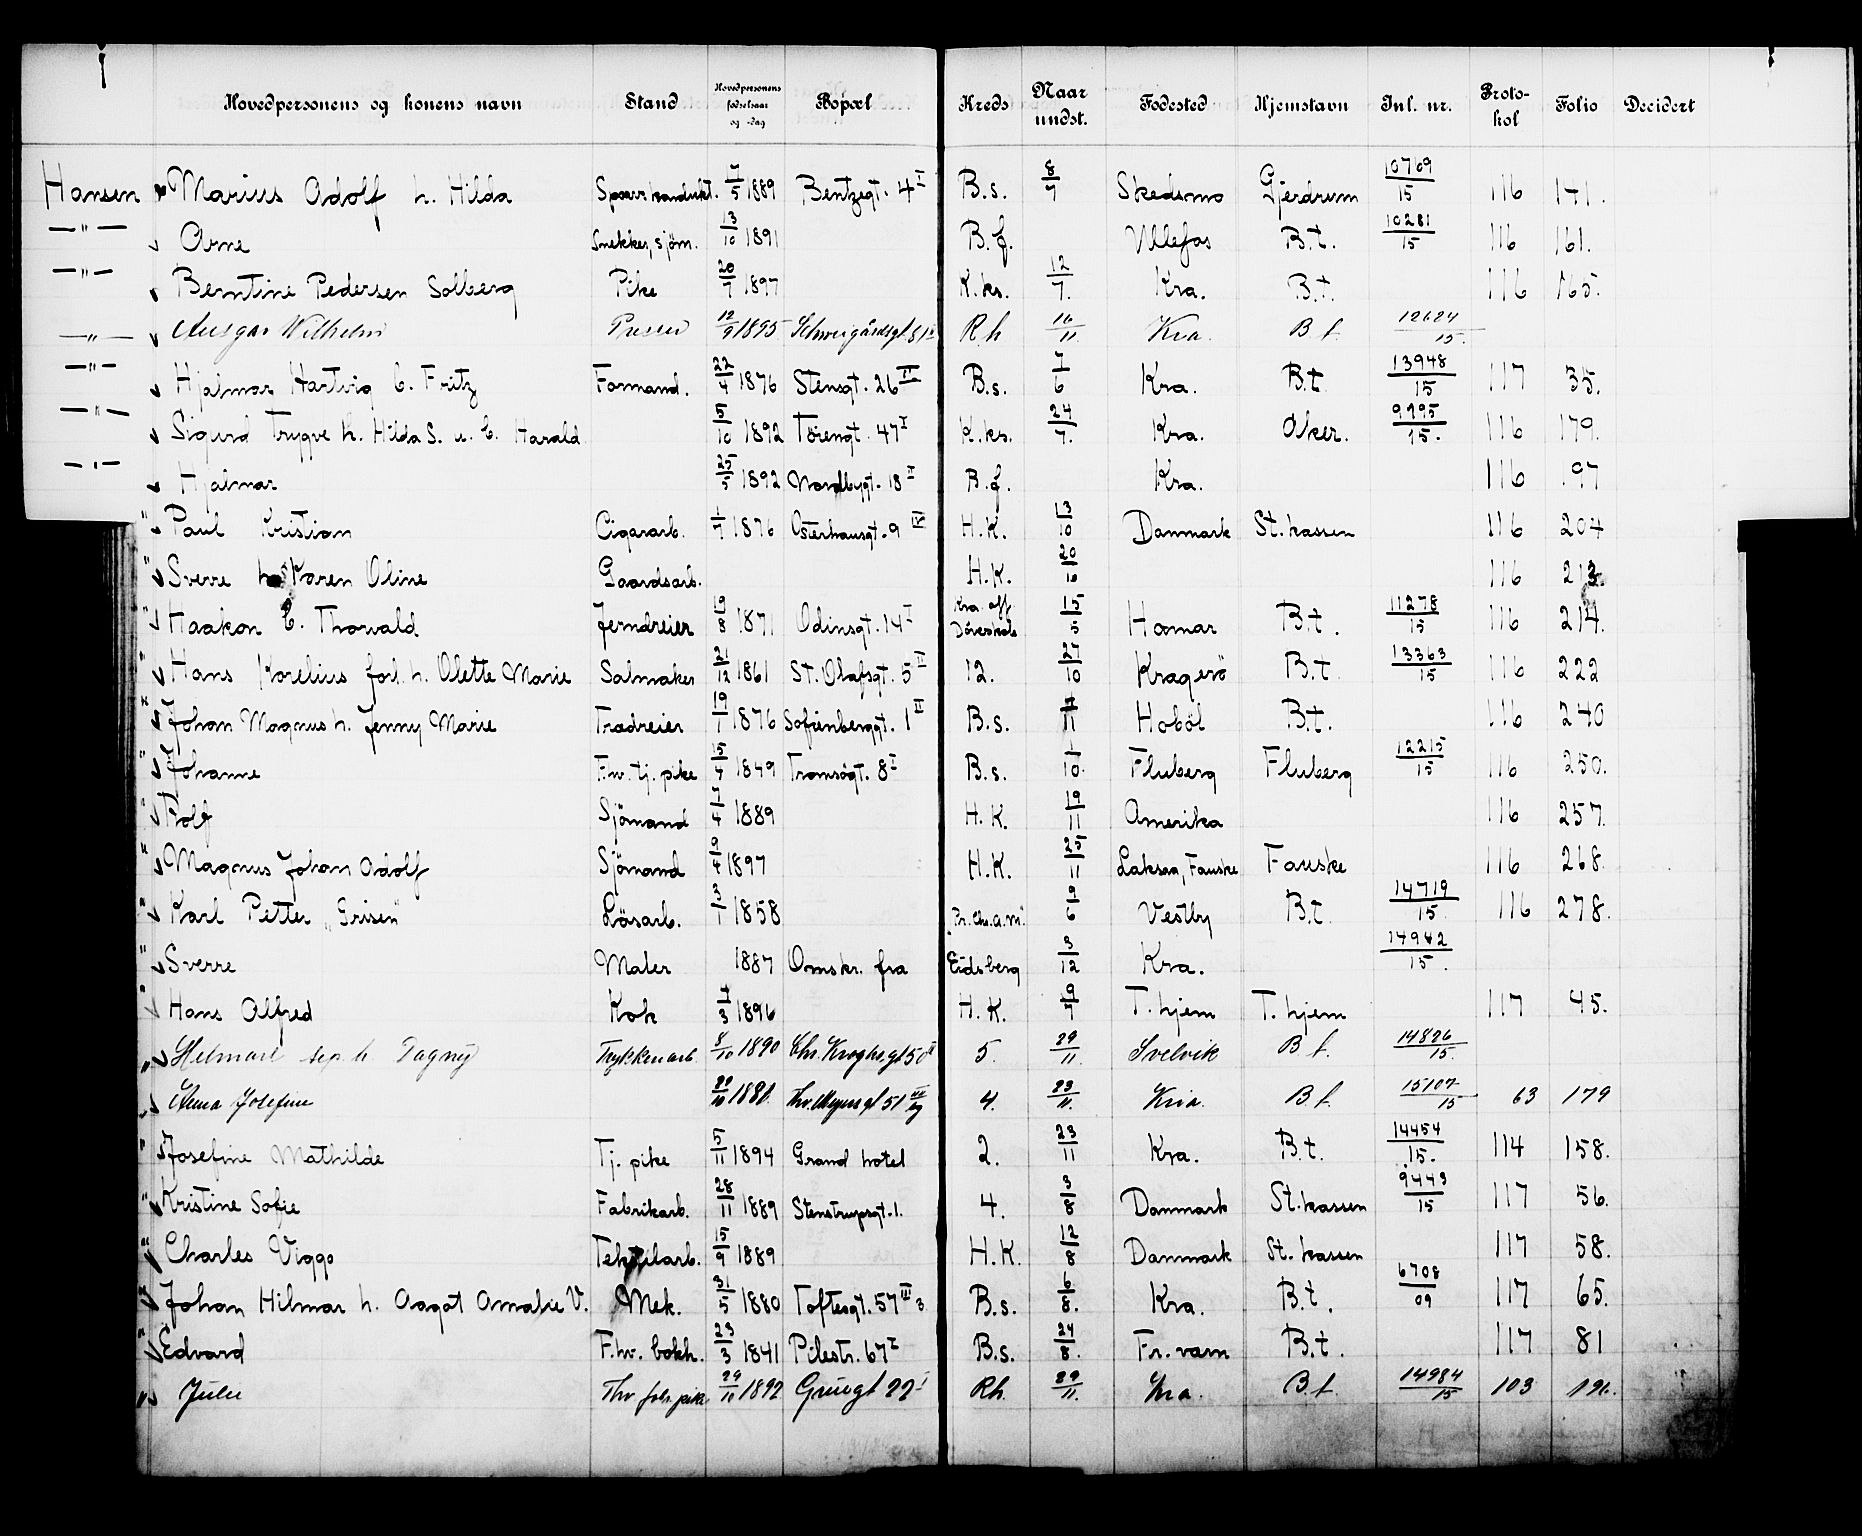 Hovedpersonens og konens navn | Stand | Hovedpersonens fødselsaar og -dag | Bopæl | Kreds | Naar undst. | Fødested | Hjemstavn | Jnl. nr. | Protokol | Folio | Decidert
Hansen Marius Adolf h. Hilda | 7/5 1889 | Bentzegt. 4 I | B.s. | 8/7 | Skedsmo | Gjerdrum | 10769/15 | 116 | 141.
—"— Arne | Snekker, sjøm. | 13/10 1891 | B.f. | Ullefos | B.t. | 10281/15 | 116 | 161.
—"— Berntine Pedersen Solberg | Pike | 20/7 1897 | K.ks. | 12/7. | Kra. | B.t. | 116 | 165.
—"— Ansgar Wilhelm | 12/9 1895 | Schweigårdsgt 51 | R.h | 16/11 | Kra. | B.t. | 12624/15.
—"— Hjalmar Hartvig C. Fritz | Formand. | 22/4 1876 | Stensgt. 26 | B.s. | 7/6 | Kra. | B.t. | 13948/15 | 117 | 35.
—"— Sigurd Trygve h. Hilda S. u. C. Harald | 5/10 1892 | Töiengt. 47 I | K.ks. | 24/7. | Kra. | Aker. | 9995/15. | 116 | 179.
—"— Hjalmar | 25/5 1892 | Nordbygt. 18 II | B.f. | Kra. | 116 | 197
" Paul Kristian | Cigararb. | 1/7 1876 | Osterhausgt. 9 IV | H.K. | 13/10 | Danmark | St. kassen | 116 | 204
" Sverre Karen Oline | Gaardsarb. | H.K. | 20/10 | 116 | 213.
" Haakon C. Thorvald | Jerndreier | 19/8 1871 | Odinsgt. 14 I | Kra. off. Döveskole | 15/5 | Hamar | B.t. | 11278/15 | 116 | 214.
" Hans Korelius forl. h. Olette Marie | Salmaker | 21/12 1861 | St. Olafsgt. 5 II | 12. | 27/10 | Kragerö | B.t. | 13363/15 | 116 | 222
" Johan Magnus h. Jenny Marie | Trædreier | 19/1 1876 | Sofienberggt. 1 II | B.s. | Hobøl | B.t. | 116 | 240
" Johanne | F.hv. tj. pike | 15/4 1849 | Tromsögt. 8 I | B.s. | 1/10. | Fluberg | Fluberg | 12215/15 | 116 | 250.
" Rolf | Sjömand | 7/4 1889 | H.K. | 19/11 | Amerika | 116 | 257.
" Magnus Johan Adolf | Sjömand | 9/4 1897 | H.K. | 25/11 | Laksaa, Fauske | Fauske | 116 | 268.
" Karl Petter „Grisen" | Løsarb. | 3/1 1858 | 9/6 | Vestby | B.t. | 14719/15. | 116 | 278.
" Sverre | Maler | 1887 | Omskr. fra | Eidsberg | 3/12 | Kra. | 14942/15.
" Hans Alfred | Kok | 4/3 1896 | H.K. | 9/7 | T.hjem | T.hjem | 117 | 45.
" Helmart sep. h. Dagny | Trykkeriarb. | 8/10 1890 | Chr. Kroghsgt 50 II | 5. | 29/11. | Svelvik | B.t. | 14826/15.
" Anna Josefine | 1881. | Thv. Meyersgt 51 III | 4. | 23/11. | Kra. | B.t. | 15107/15 | 63 | 179
" Josefine Mathilde | Tj. pike | 5/11 1894 | Grand hotel | 2. | 23/11 | Kra. | B.t. | 14454/15. | 114 | 158.
" Kristine Sofie | Fabrikarb. | 28/11 1889 | Stenstrupsgt. 1. | 4. | 3/8 | Danmark | St. kassen | 9443/15 | 117 | 56.
" Charles Viggo | 15/9 1889 | H.K. | 12/8 | Danmark | St. kassen | 117 | 58.
" Johan Hilmar h. Aagot Amalie V. | Mek. | 31/5 1880 | Toftesgt. 57 III 3 | B.s. | 6/8. | Kra. | B.t. | 6708/09 | 117 | 65.
" Edvard | F.hv. bokh. | 23/3 1841 | Pilestr. 67 I | B.s. | 24/8. | Fr. værn | B.t. | 117 | 81
" Julie | Fhv. pike | 29/11 1892 | 22 I | Rh. | 29/11. | Kra | B.t. | 14984/15 | 103 | 191.